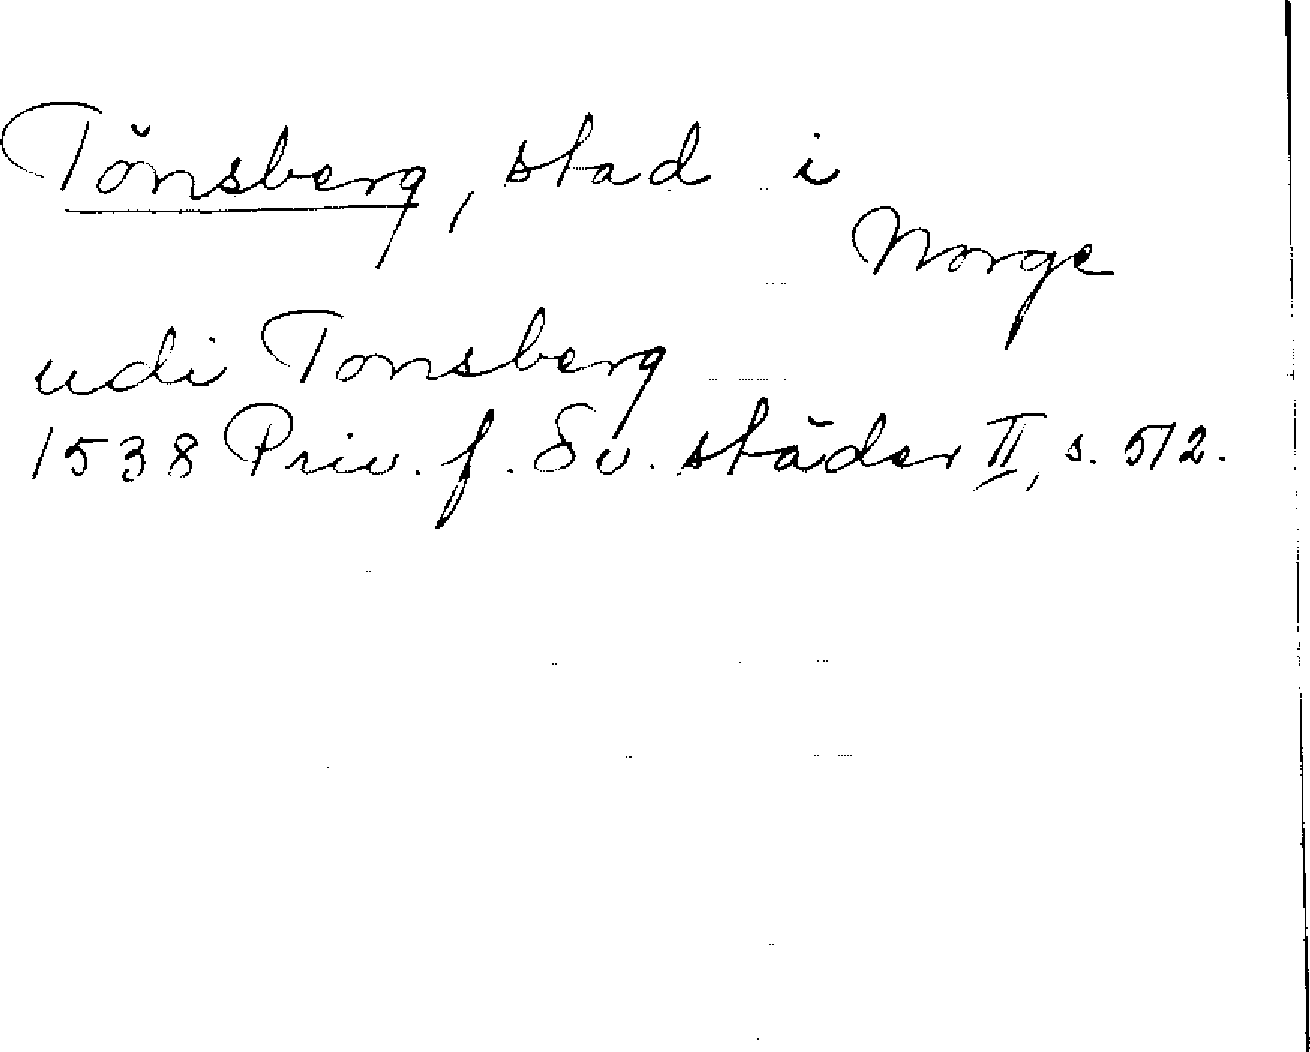 Tönsberg, stad i
Norge
udi Tonsberg
1538 Priv. f. Sv. städer II, s. 512.